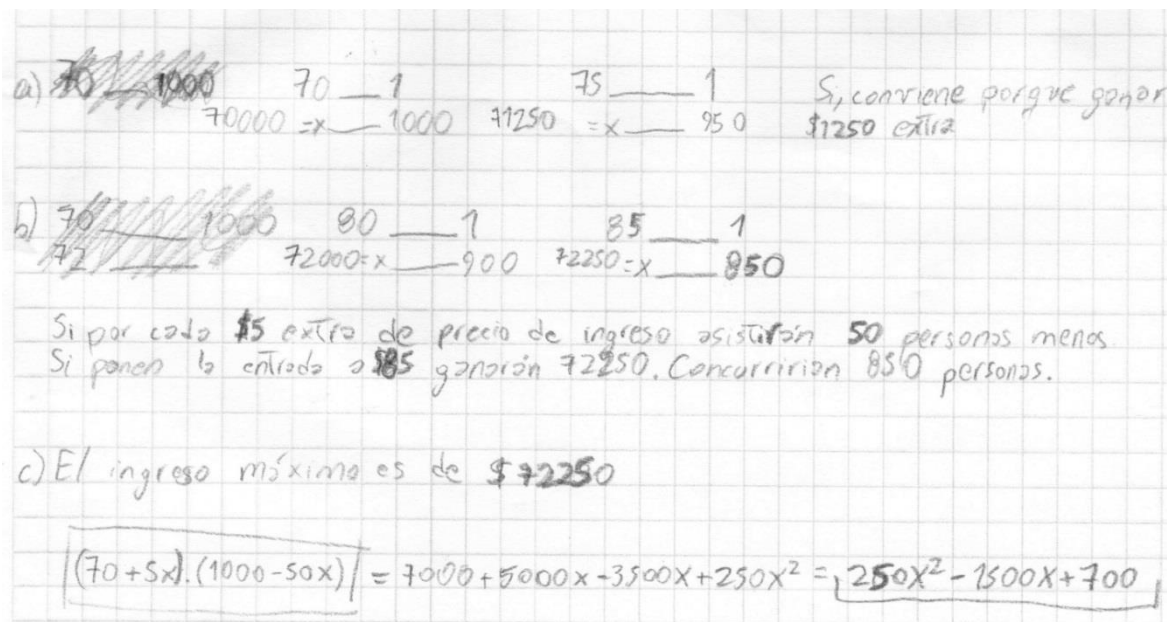 a) 70 1000 70 — 1 75 — 1 Si, conviene porque ganan
70000 =x — 1000 71250 =x — 950 $1250 extra
b) 70 — 1000 80 — 1 85 — 1
72 — 72000=x — 900 72250=x — 850
Si por cada $5 extra de precio de ingreso asistirán 50 personas menos
Si ponen la entrada a $85 ganarán 72250. Concurririan 850 personas.
c) El ingreso máximo es de $72250
(70+5x).(1000-50x) = 7000+5000x-3500x+250x² = 250x²-1500x+700